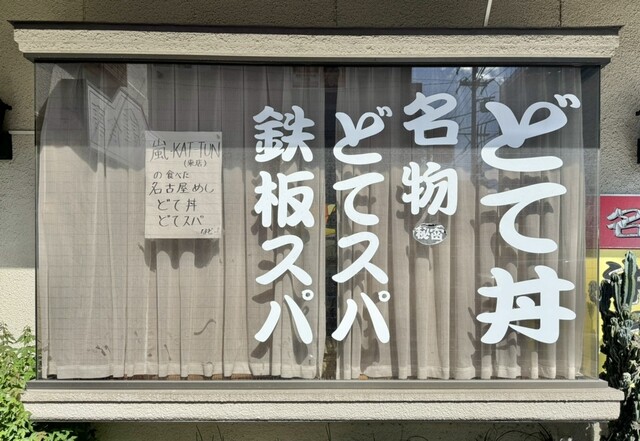 どて丼
名物
秘密
どてスパ
鉄板スパ
嵐・KAT TUN
(来店)
の食べた
名古屋めし
どて丼
どてスパ
など…
名